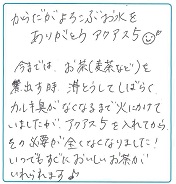 からだがよろこぶお水を
ありがとう アクアス5
今までは、お茶(麦茶など)を
煮出す時、沸とうしてしばらく
カルキ臭がなくなるまで火にかけて
いましたが、アクアス5を入れてから
その必要が全くなくなりました!
いつでもすぐにおいしいお茶が
いれられます♪